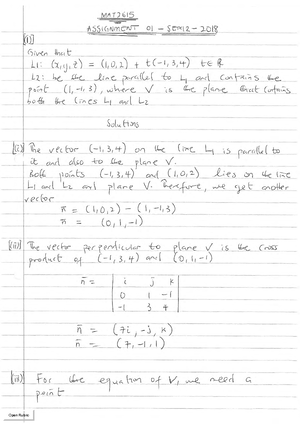 MAT2615
ASSIGNMENT 01 - SEM2 - 2018
[1]
Given that
L1: (x,y,z) = (1,0,2) + t(-1,3,4) t∈R
L2: be the line parallel to L1 and contains the
point (1,-1,3), where V is the plane that contains
both the lines L1 and L2
Solutions
The vector (-1,3,4) on the line L1 is parallel to
it and also to the plane V.
Both points (-1,3,4) and (1,0,2) lies on the line
L1 and L2 and plane V. Therefore, we get another
vector
n = (1,0,2) - (1,-1,3)
n = (0,1,-1)
The vector perpendicular to plane V is the cross
product of (-1,3,4) and (0,1,-1)
n = | i j k
0 1 -1
-1 3 4 |
n = (7i, -j, k)
n = (7,-1,1)
For the equation of V, we need a
point
Open Rubric